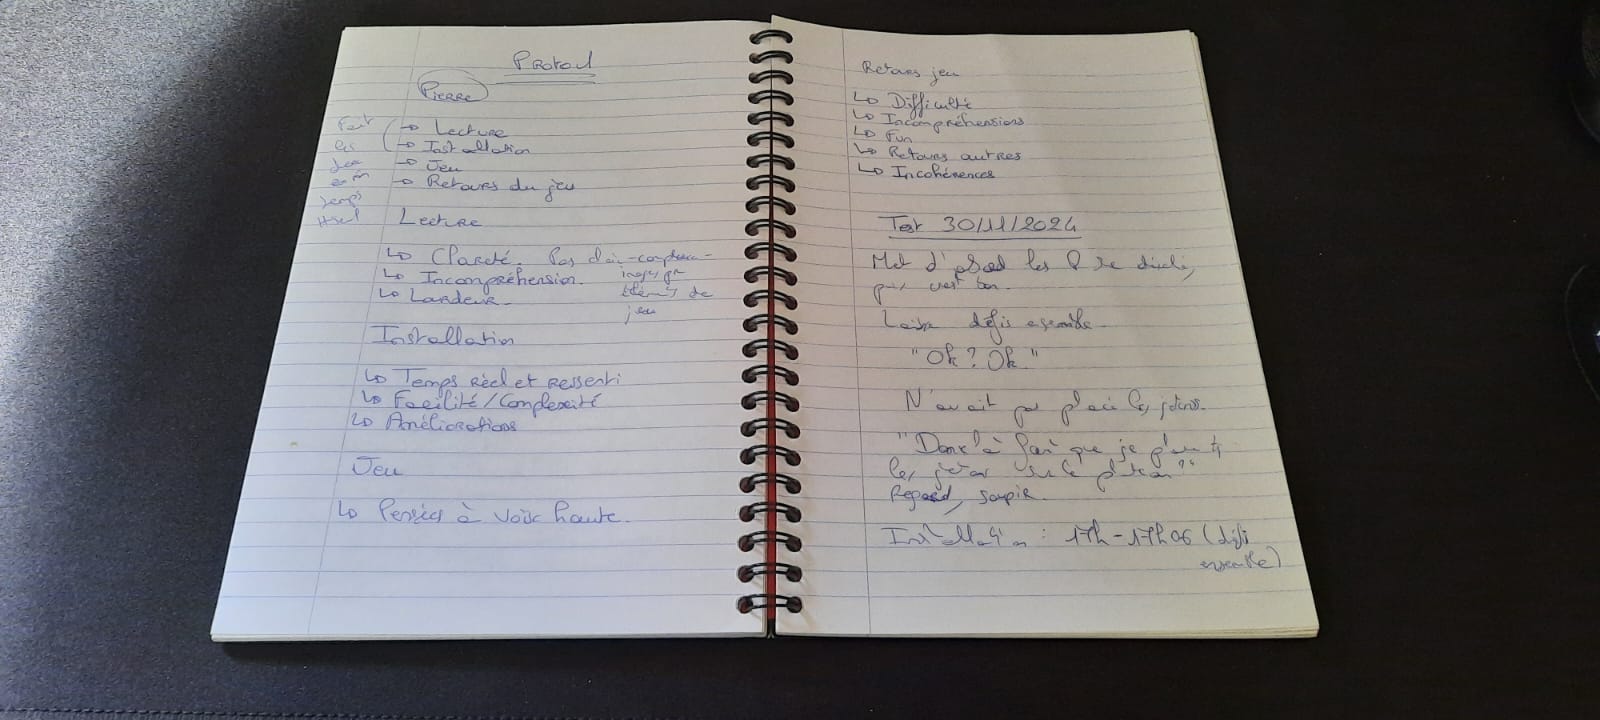 Protocol
Pierre
Fait
les
en
temps
→ Lecture
→ Installation
→ Jeu
→ Retours du jeu
Lecture
↳ Clareté. Pas d'in-compréhen-
↳ Incompréhension.
↳ Lourdeur.
éléments de
jeu
Installation
↳ Temps réel et ressenti
↳ Facilité/Complexité
↳ Améliorations
Jeu
↳ Pensées à voix haute.
Retours jeu
↳ Difficulté
↳ Incompréhensions
↳ Fun
↳ Retours autres
↳ Incohérences
Test 30/11/2024
Met d'abord les P
Laisse défis ensemble.
"Ok? Ok."
N'avait pas placé les jetons.
"Donc là faut que je
les jetons sur le plateau"
Regard, soupir.
Installation : 17h-17h06 (défis
ensemble)